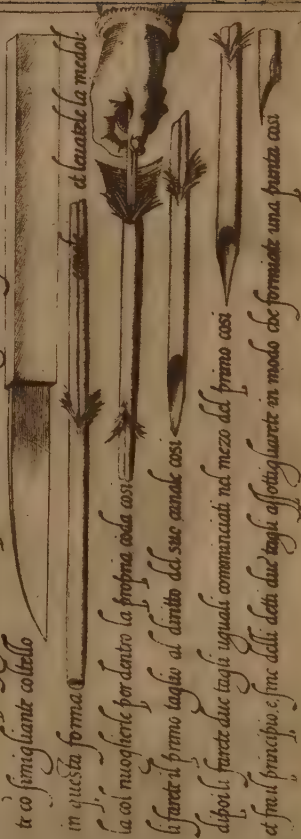 te co simigliante coltello
in questa forma et leuatele la medol
la col riuoglierle per dentro la propria coda cosi
li farete il primo taglio al diritto del suo canale cosi
dipoi li farete due tagli uguali cominciati nel mezo del primo cosi
et fra il principio, e fine delli detti due tagli assottigliarete in modo che formiate una punta cosi